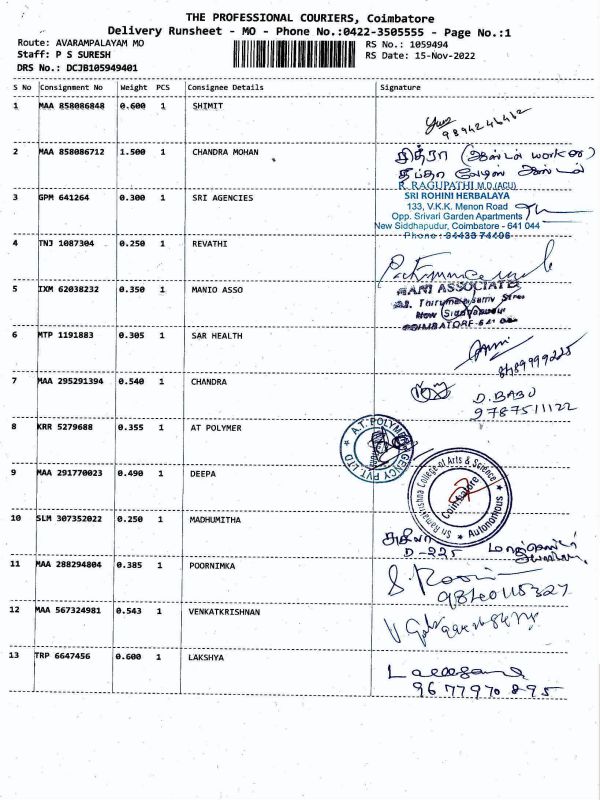 THE PROFESSIONAL COURIERS, Coimbatore
Delivery Runsheet - MO - Phone No.:0422-3505555 - Page No.:1
Route: AVARAMPALAYAM MO
RS No.: 1059494
Staff: P S SURESH
RS Date: 15-Nov-2022
DRS No.: DCJB105949401
S No Consignment No Weight PCS Consignee Details Signature
1 MAA 858086848 0.600 1 SHIMIT
9894246462
2 MAA 858086712 1.500 1 CHANDRA MOHAN
சித்ரா
R. RAGUPATHI M.D.(ACU)
3 GPM 641264 0.300 1 SRI AGENCIES
SRI ROHINI HERBALAYA
133, V.K.K. Menon Road
Opp. Srivari Garden Apartments
New Siddhapudur, Coimbatore - 641 044
4 TNJ 1087304 0.250 1 REVATHI
5 IXM 62038232 0.350 1 MANIO ASSO
MANI ASSOCIATES
New Siddhapudur
6 MTP 1191883 0.305 1 SAR HEALTH
8489999225
7 MAA 295291394 0.540 1 CHANDRA
D. BABU
9787511122
8 KRR 5279688 0.355 1 AT POLYMER
A.T. POLYMER AGENCY PVT. LTD
9 MAA 291770023 0.490 1 DEEPA
Sri Ramakrishna College of Arts & Science
Coimbatore
Autonomous
10 SLM 307352022 0.250 1 MADHUMITHA
D-225
11 MAA 288294804 0.385 1 POORNIMKA
9840115327
12 MAA 567324981 0.543 1 VENKATKRISHNAN
13 TRP 6647456 0.600 1 LAKSHYA
9677970895